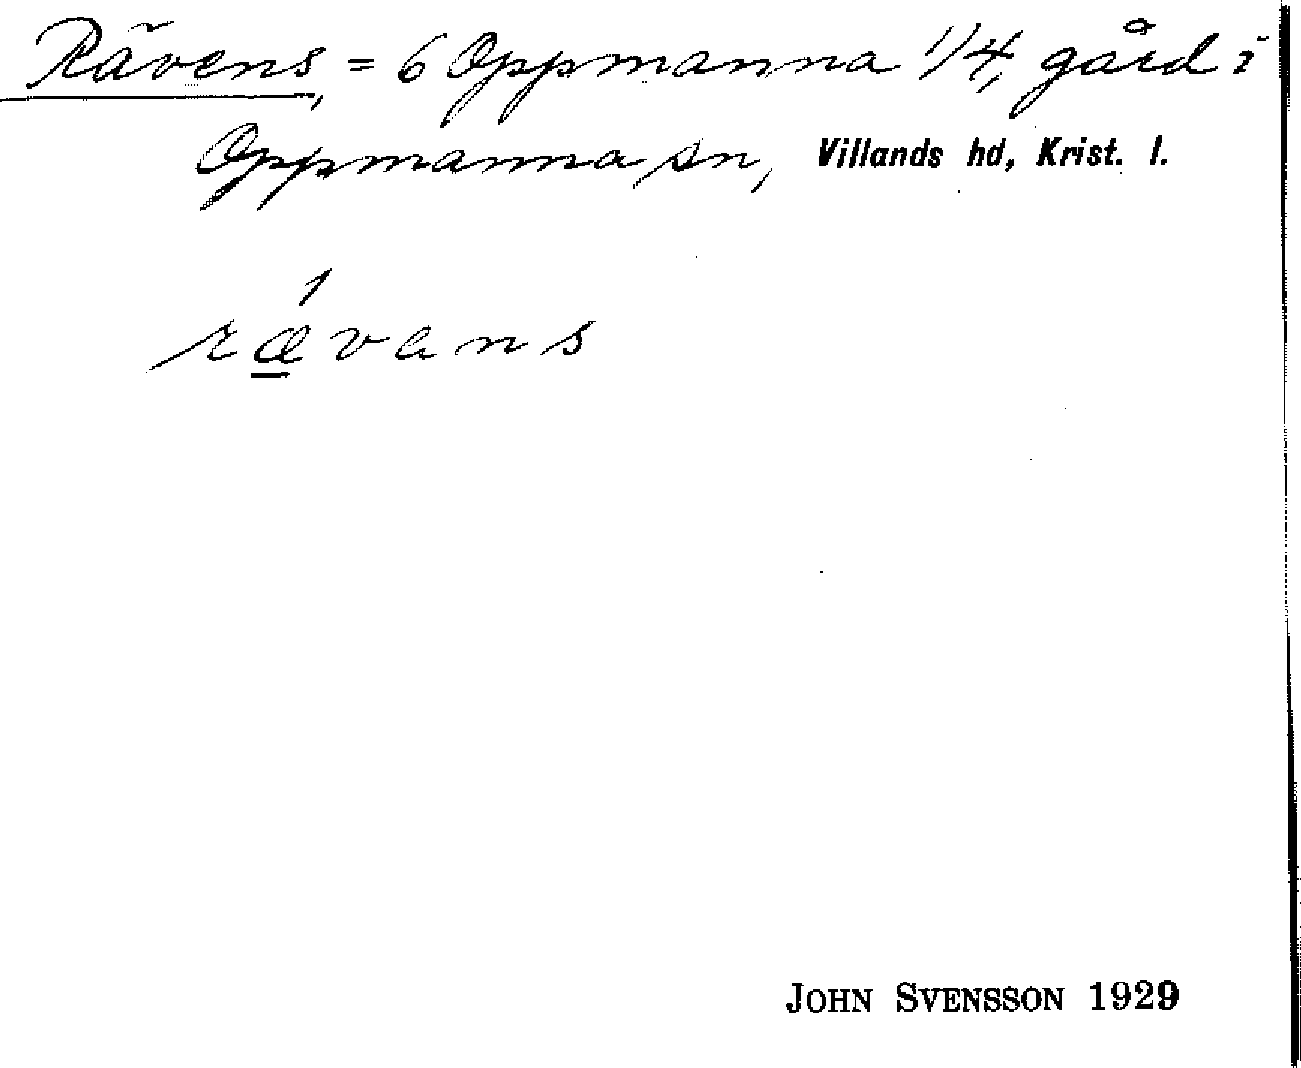 Rävens, = 6 Oppmanna 1/4, gård i
Oppmanna sn, Villands hd, Krist. l.
rævans
JOHN SVENSSON 1929